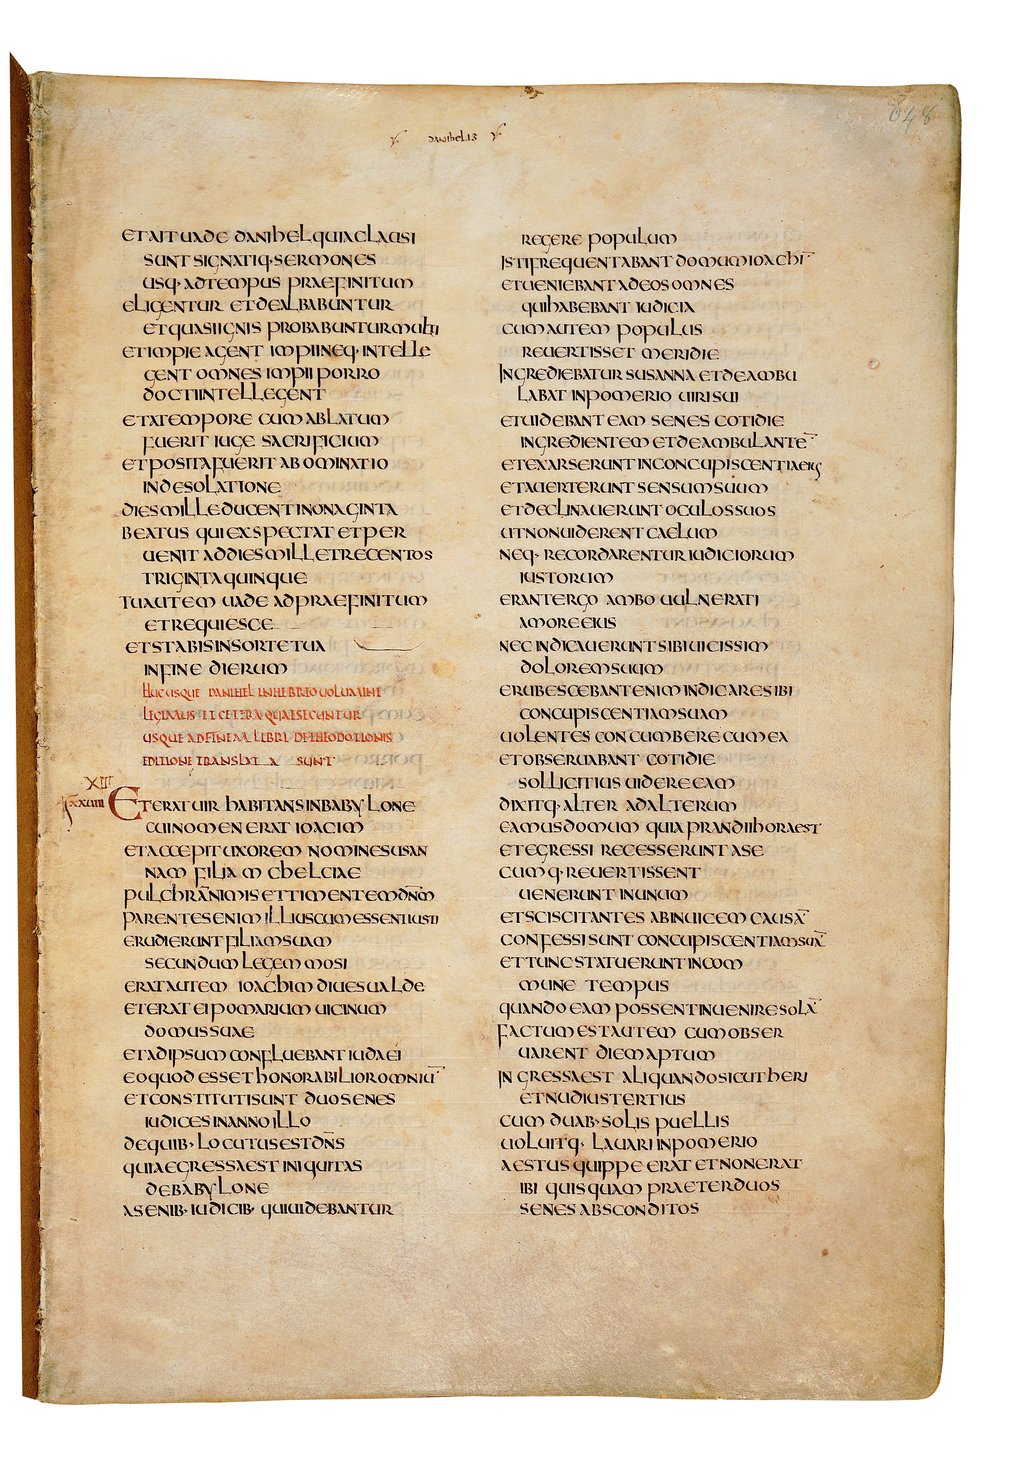 DANIHELIS
048
ET AIT UADE DANIHEL QUIA CLAUSI
SUNT SIGNATIQ· SERMONES
USQ· AD TEMPUS PRAEFINITUM
ELIGENTUR ET DEALBABUNTUR
ET QUASI IGNIS PROBABUNTUR MULTI
ET IMPIE AGENT IMPII NEQ· INTELLE
GENT OMNES IMPII PORRO
DOCTI INTELLEGENT
ET A TEMPORE CUM ABLATUM
FUERIT IUGE SACRIFICIUM
ET POSITA FUERIT ABOMINATIO
IN DESOLATIONE
DIES MILLE DUCENTI NONAGINTA
BEATUS QUI EXSPECTAT ET PER
UENIT AD DIES MILLE TRECENTOS
TRIGINTA QUINQUE
TU AUTEM UADE AD PRAEFINITUM
ET REQUIESCE
ET STABIS IN SORTE TUA
IN FINE DIERUM
HUCUSQUE DANIHEL IN HEBREO UOLUMINE
LEGIMUS ET CETERA QUAE SECUNTUR
USQUE AD FINEM LIBRI DE THEODOTIONIS
EDITIONE TRANSLATA SUNT
XIII
ET ERAT UIR HABITANS IN BABYLONE
CUI NOMEN ERAT IOACIM
ET ACCEPIT UXOREM NOMINE SUSAN
NAM FILIAM CHELCIAE
PULCHRA̅ NIMIS ET TIMENTEM DN̅M
PARENTES ENIM ILLIUS CUM ESSENT IUSTI
ERUDIERUNT FILIAM SUAM
SECUNDUM LEGEM MOSI
ERAT AUTEM IOACHIM DIUES UALDE
ET ERAT EI POMARIUM UICINUM
DOMUS SUAE
ET AD IPSUM CONFLUEBANT IUDAEI
EO QUOD ESSET HONORABILIOR OMNIU̅
ET CONSTITUTI SUNT DUO SENES
IUDICES IN ANNO ILLO
DE QUIB· LOCUTUS EST DN̅S
QUIA EGRESSA EST INIQUITAS
DE BABYLONE
A SENIB· IUDICIB· QUI UIDEBANTUR
REGERE POPULUM
ISTI FREQUENTABANT DOMUM IOACHI̅
ET UENIEBANT AD EOS OMNES
QUI HABEBANT IUDICIA
CUM AUTEM POPULUS
REUERTISSET MERIDIE
INGREDIEBATUR SUSANNA ET DEAMBU
LABAT IN POMERIO UIRI SUI
ET UIDEBANT EAM SENES COTIDIE
INGREDIENTEM ET DEAMBULANTE̅
ET EXARSERUNT IN CONCUPISCENTIA EIUS
ET AUERTERUNT SENSUM SUUM
ET DECLINAUERUNT OCULOS SUOS
UT NON UIDERENT CAELUM
NEQ· RECORDARENTUR IUDICIORUM
IUSTORUM
ERANT ERGO AMBO UULNERATI
AMORE EIUS
NEC INDICAUERUNT SIBI UICISSIM
DOLOREM SUUM
ERUBESCEBANT ENIM INDICARE SIBI
CONCUPISCENTIAM SUAM
UOLENTES CONCUMBERE CUM EA
ET OBSERUABANT COTIDIE
SOLLICITIUS UIDERE EAM
DIXITQ· ALTER AD ALTERUM
EAMUS DOMUM QUIA PRANDII HORA EST
ET EGRESSI RECESSERUNT A SE
CUMQ· REUERTISSENT
UENERUNT IN UNUM
ET SCISCITANTES AB INUICEM CAUSA̅
CONFESSI SUNT CONCUPISCENTIAM SUA̅
ET TUNC STATUERUNT IN COM
MUNE TEMPUS
QUANDO EAM POSSENT INUENIRE SOLA̅
FACTUM EST AUTEM CUM OBSER
UARENT DIEM APTUM
INGRESSA EST ALIQUANDO SICUT HERI
ET NUDIUSTERTIUS
CUM DUAB· SOLIS PUELLIS
UOLUITQ· LAUARI IN POMERIO
AESTUS QUIPPE ERAT ET NON ERAT
IBI QUISQUAM PRAETER DUOS
SENES ABSCONDITOS